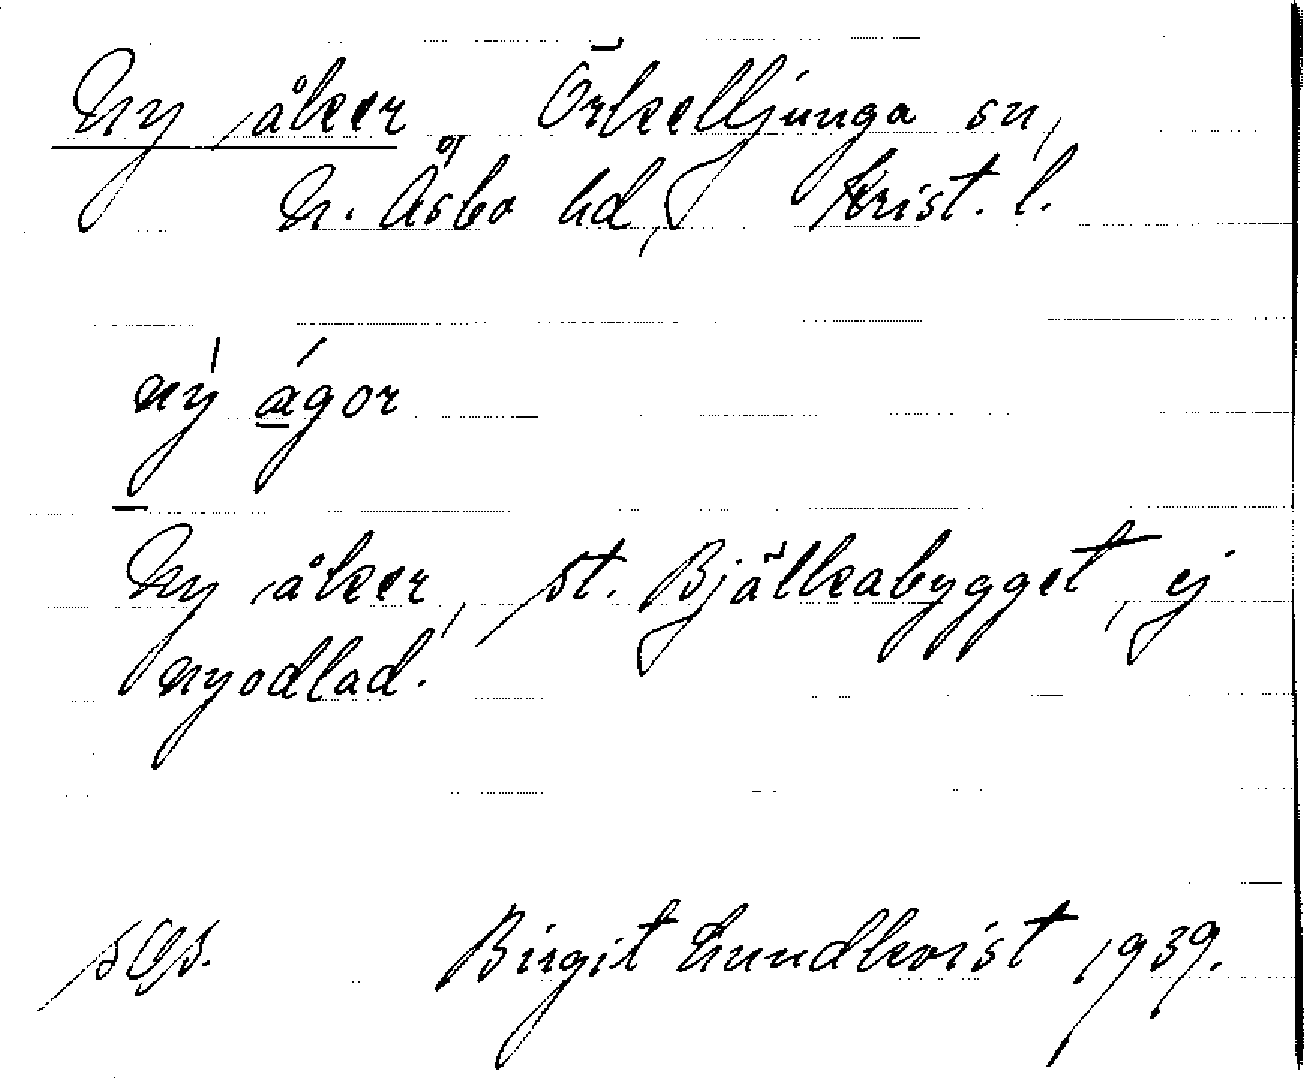 Ny åker Örkelljunga sn,
N. Åsbo hd, Krist. l.
ný ágor
Ny åker, st. Bjälkabygget, ej
nyodlad.
Birgit Lundkvist 1939.